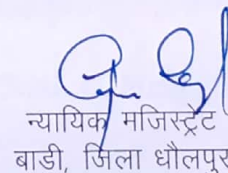 न्यायिक मजिस्ट्रेट
बाडी, जिला धौलपुर